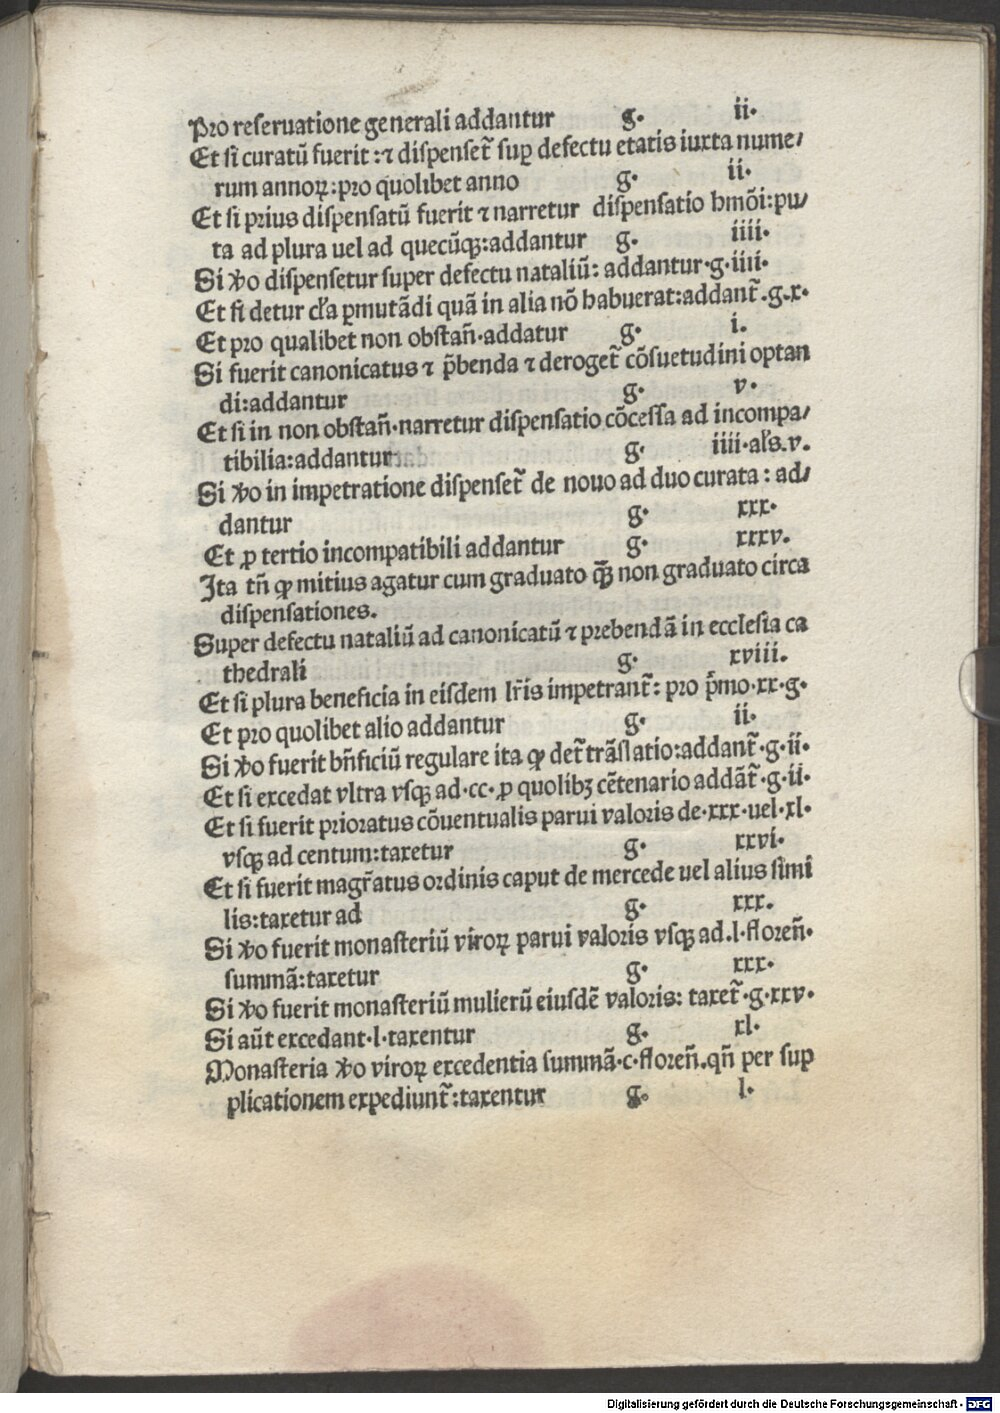 Pro reseruatione generali addantur g. ii.
Et si curatū fuerit : ⁊ dispenset᷑ suꝑ defectu etatis iuxta nume/
rum annoꝝ:pro quolibet anno g. ii.
Et si prius dispensatū fuerit ⁊ narretur dispensatio hmōi:pu/
ta ad plura uel ad quecūqꝫ:addantur g. iiii.
Si ꝟo dispensetur super defectu nataliū: addantur.g.iiii.
Et si detur cl̄a ꝑmutādi quā in alia nō habuerat:addant᷑.g.x.
Et pro qualibet non obstan̄.addatur g. i.
Si fuerit canonicatus ⁊ p̄benda ⁊ deroget᷑ cōsuetudini optan
di:addantur g. v.
Et si in non obstan̄.narretur dispensatio cōcessa ad incompa/
tibilia:addantur g. iiii.al̄s.v.
Si ꝟo in impetratione dispenset᷑ de nouo ad duo curata : ad/
dantur g. xxx.
Et ꝓ tertio incompatibili addantur g. xxxv.
Ita tn̄ ꝙ mitius agatur cum graduato qꝫ̄ non graduato circa
dispensationes.
Super defectu nataliū ad canonicatū ⁊ prebendā in ecclesia ca
thedrali g. xviii.
Et si plura beneficia in eisdem lr̄is impetrant᷑: pro p̄mo.xx.g.
Et pro quolibet alio addantur g. ii.
Si ꝟo fuerit bn̄ficiū regulare ita ꝙ det᷑ trāslatio:addant᷑.g.ii.
Et si excedat vltra vsqꝫ ad.cc.ꝓ quolibꝫ cētenario addāt᷑.g.ii.
Et si fuerit prioratus cōuentualis parui valoris de.xxx.uel.xl.
vsqꝫ ad centum:taxetur g. xxvi.
Et si fuerit magr̄atus ordinis caput de mercede uel alius simi
lis:taxetur ad g. xxx.
Si ꝟo fuerit monasteriū viroꝝ parui valoris vsqꝫ ad.l.floren̄.
summā:taxetur g. xxx.
Si ꝟo fuerit monasteriū mulierū eiusdē valoris: taxet᷑.g.xxv.
Si aūt excedant.l.taxentur g. xl.
Monasteria ꝟo viroꝝ excedentia summā.c.floren̄.qn̄ per sup
plicationem expediunt᷑:taxentur g. l.
Digitalisierung gefördert durch die Deutsche Forschungsgemeinschaft - DFG